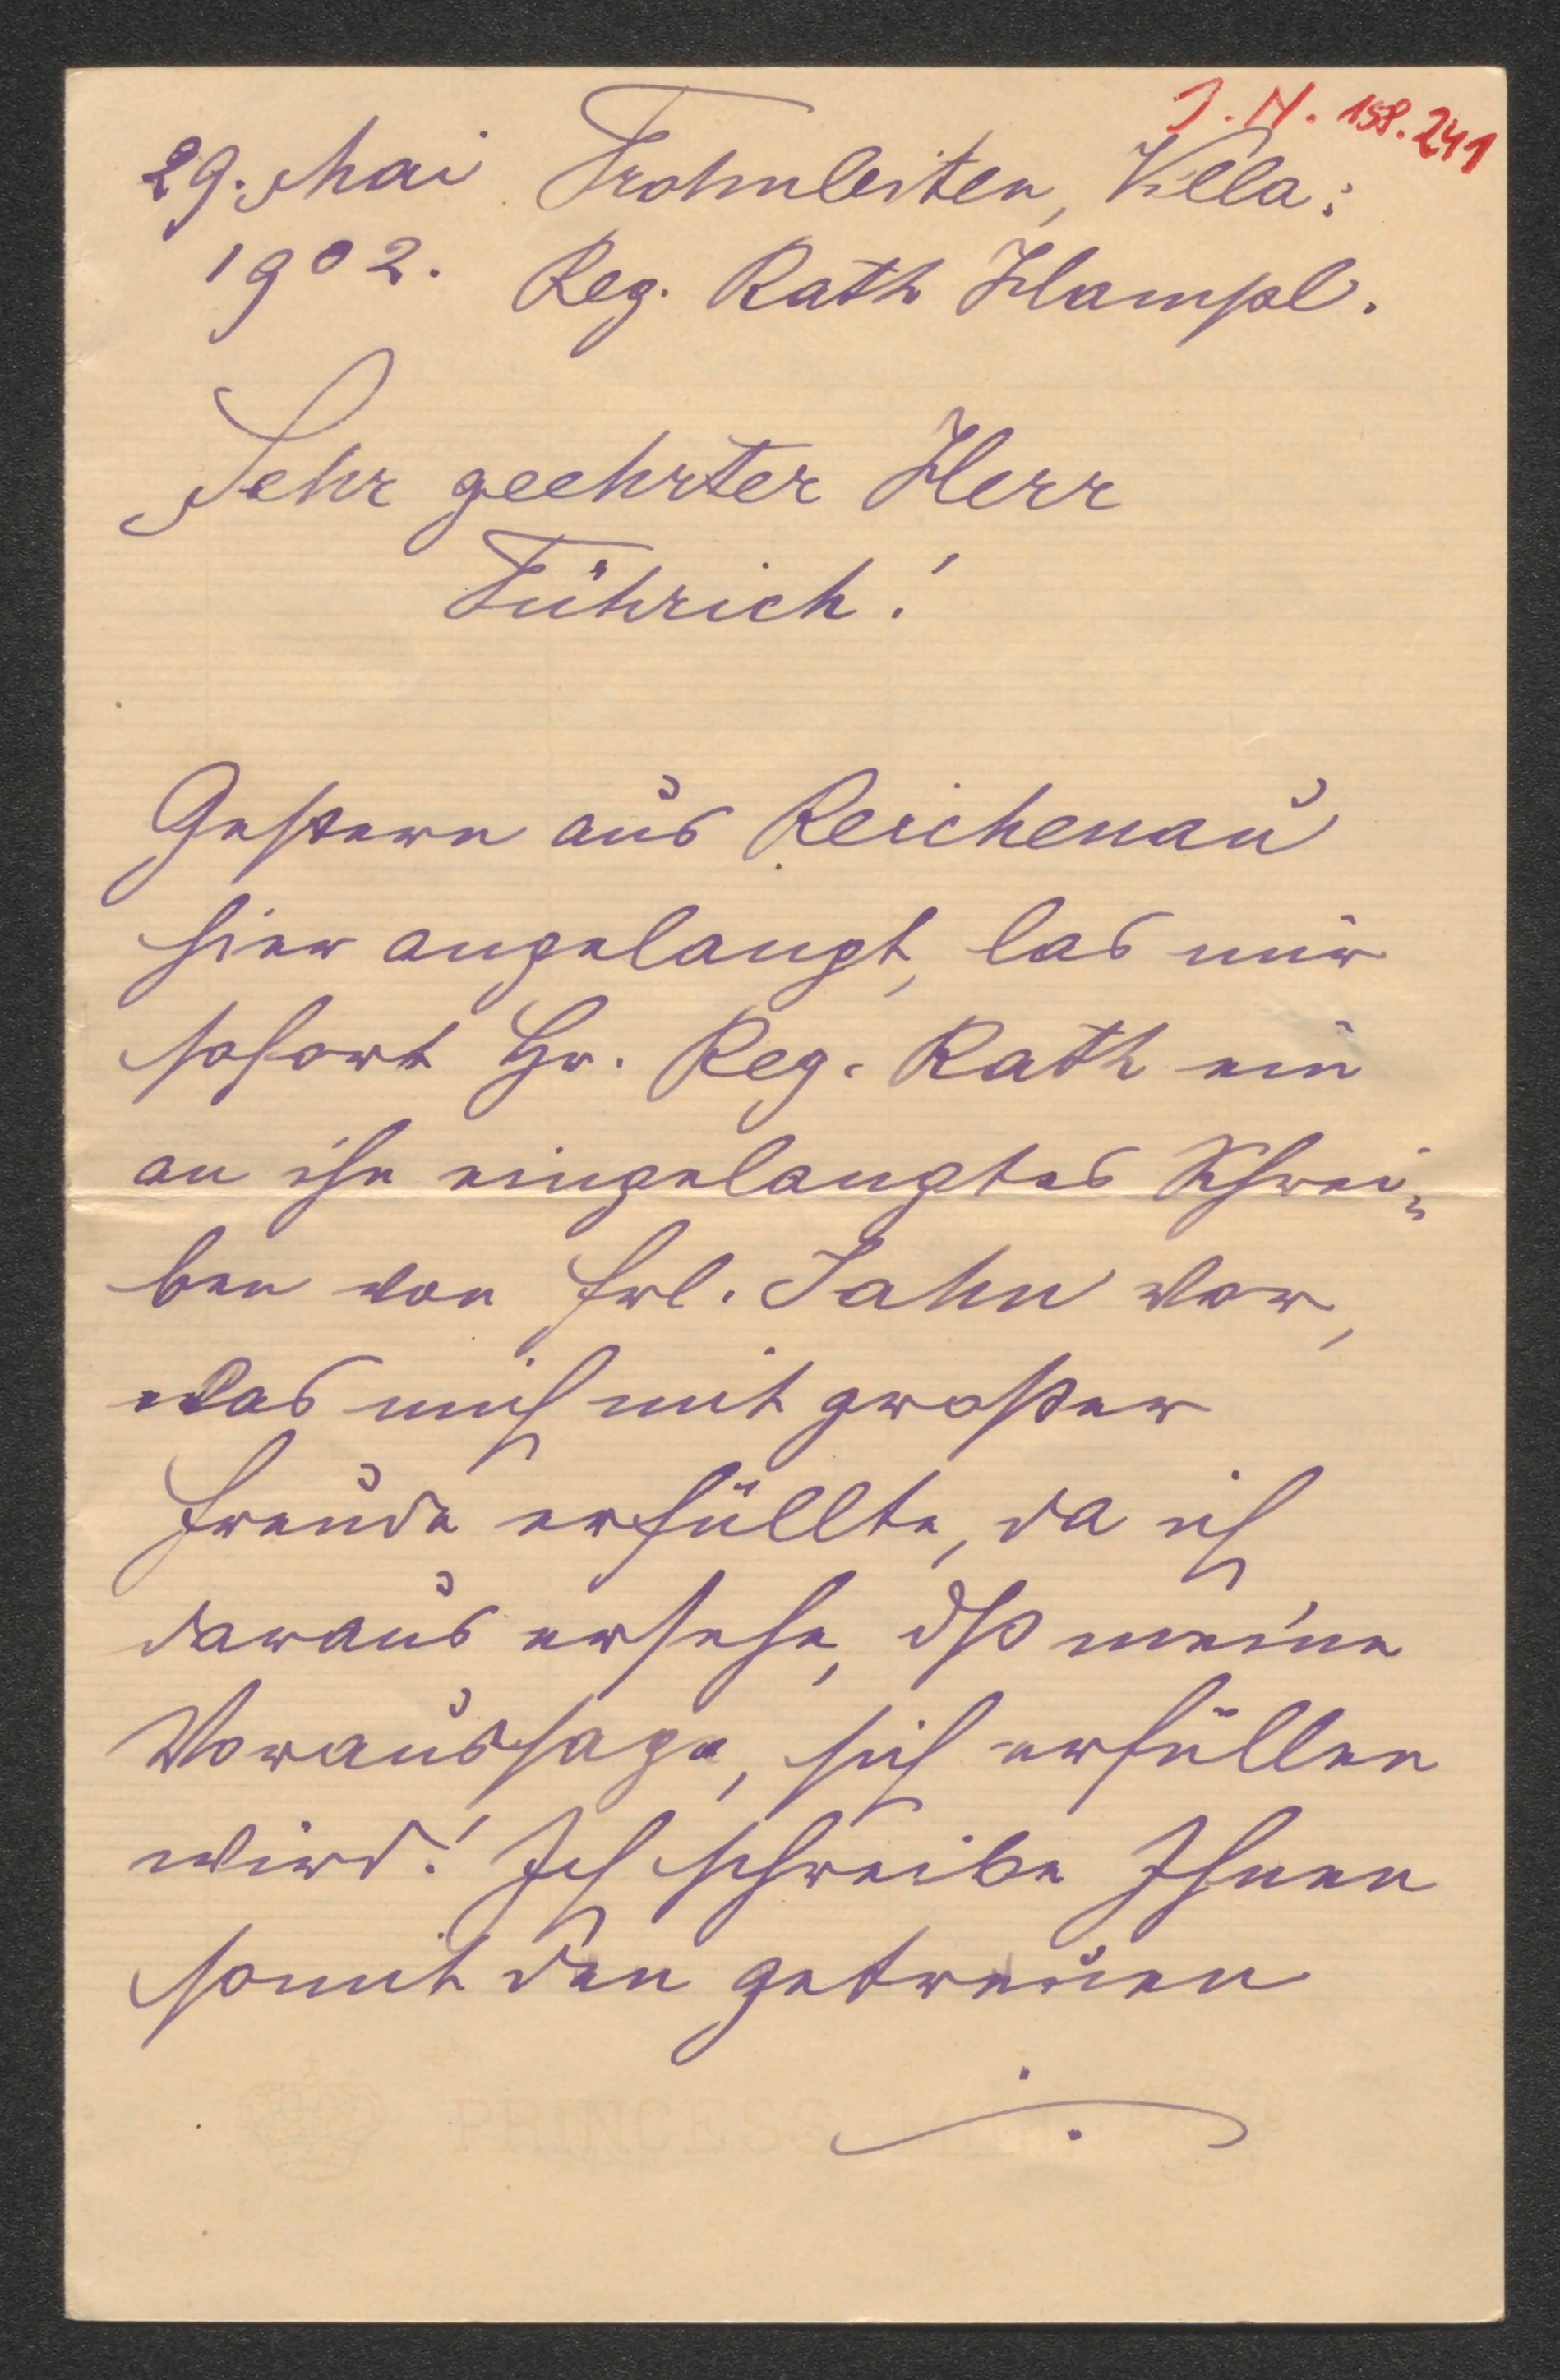 J. N. 158.241
29. Mai Frohnleiten, Villa:
1902. Reg. Rath Hampl.
Sehr geehrter Herr
Führich!
Gestern aus Reichenau
hier angelangt, las mir
sofort Hr. Reg. Rath ein
an ihn eingelangtes Schrei-
ben von Frl. Jahn vor,
was mich mit großer
Freude erfüllte, da ich
daraus ersehe, dß meine
Voraussage, sich erfüllen
wird! Ich schreibe Ihnen
somit den getreuen